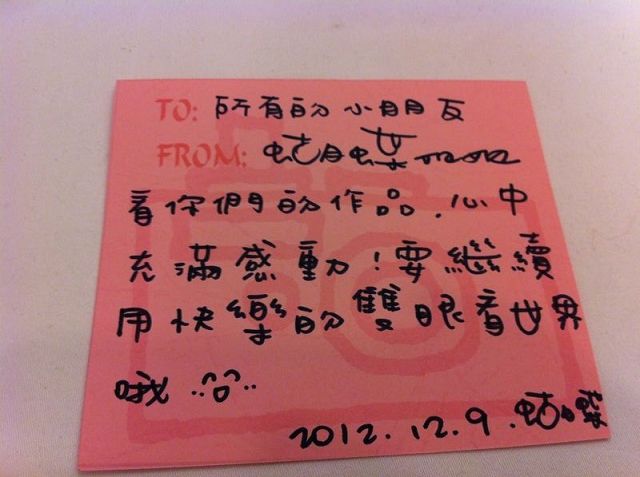 TO: 所有的小朋友
FROM: 蝴蝶
看你們的作品.心中
充滿感動!要繼續
用快樂的雙眼看世界
哦
2012.12.9.蝴蝶